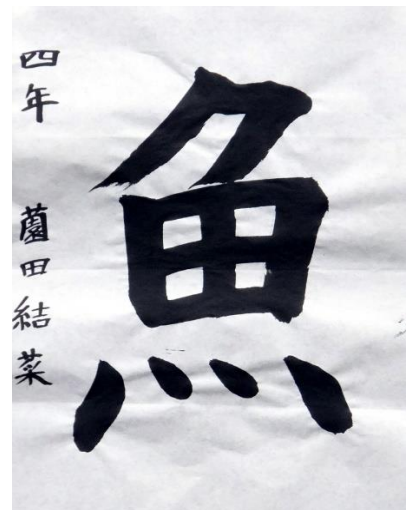 魚
四年 薗田結菜